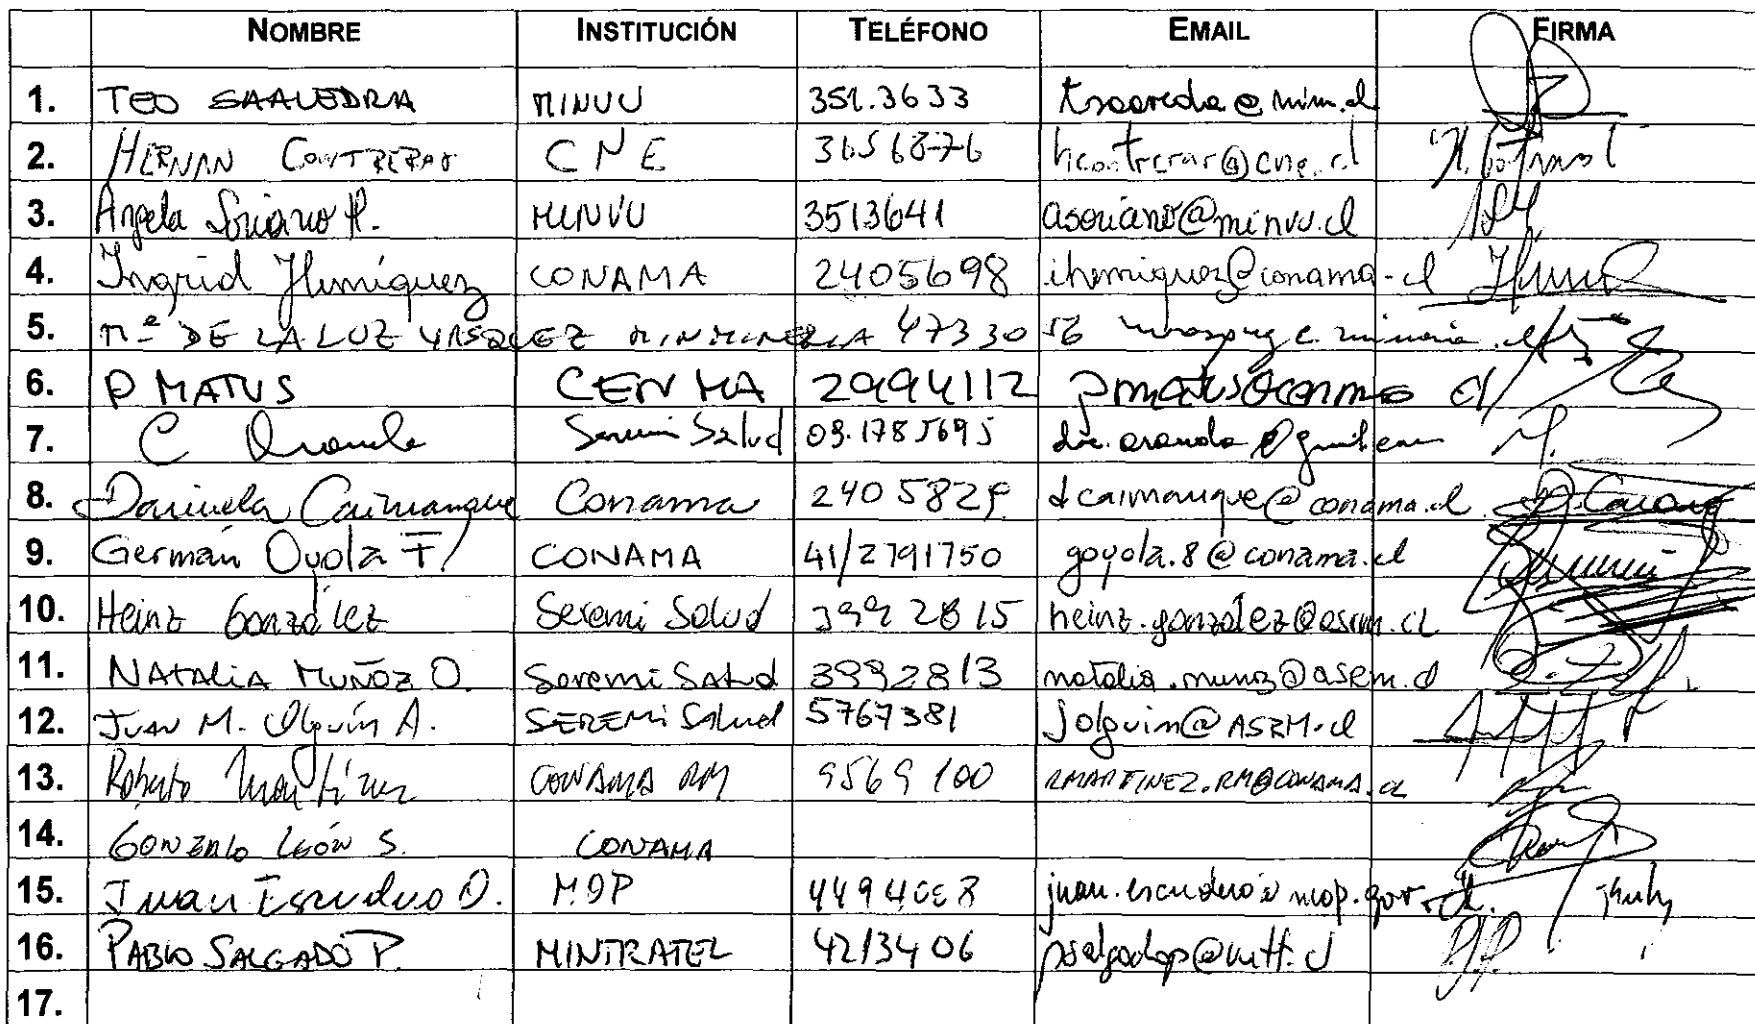 NOMBRE INSTITUCIÓN TELÉFONO EMAIL FIRMA
1. TEO SAAVEDRA MINVU 351.3633
2. HERNAN CONTRERAS CNE 3656876 hcontreras@cne.cl
3. Angela Soriano H. MINVU 3513641 asoriano@minvu.cl
4. Ingrid Henríquez CONAMA 2405698 ihenriquez@conama.cl
5. Mª DE LA LUZ VASQUEZ MINMINERIA 4733056
6. P MATUS CENMA 2994112
7. C Aranda Seremi Salud 09.1785695
8. Daniela Caimanque Conama 2405829 dcaimanque@conama.cl
9. Germán Oyola F. CONAMA 41/2791750 goyola.8@conama.cl
10. Heinz González Seremi Salud 3992815 heinz.gonzalez@asrm.cl
11. NATALIA MUÑOZ O. Seremi Salud 3992813 natalia.munoz@asrm.cl
12. JUAN M. Olguín A. SEREMI Salud 5767381 jolguin@ASRM.cl
13. Roberto Martínez CONAMA RM 9569100 RMARTINEZ.RM@CONAMA.CL
14. GONZALO LEÓN S. CONAMA
15. Juan Escudero O. MOP juan.escudero@mop.gov.cl.
16. PABLO SALGADO P. MINTRATEL 4213406 psalgadop@mtt.cl
17.